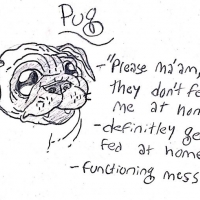 Pug
- "Please ma'am,
they don't fe
me at hom
- definitley ge
fed at home
- functioning mess